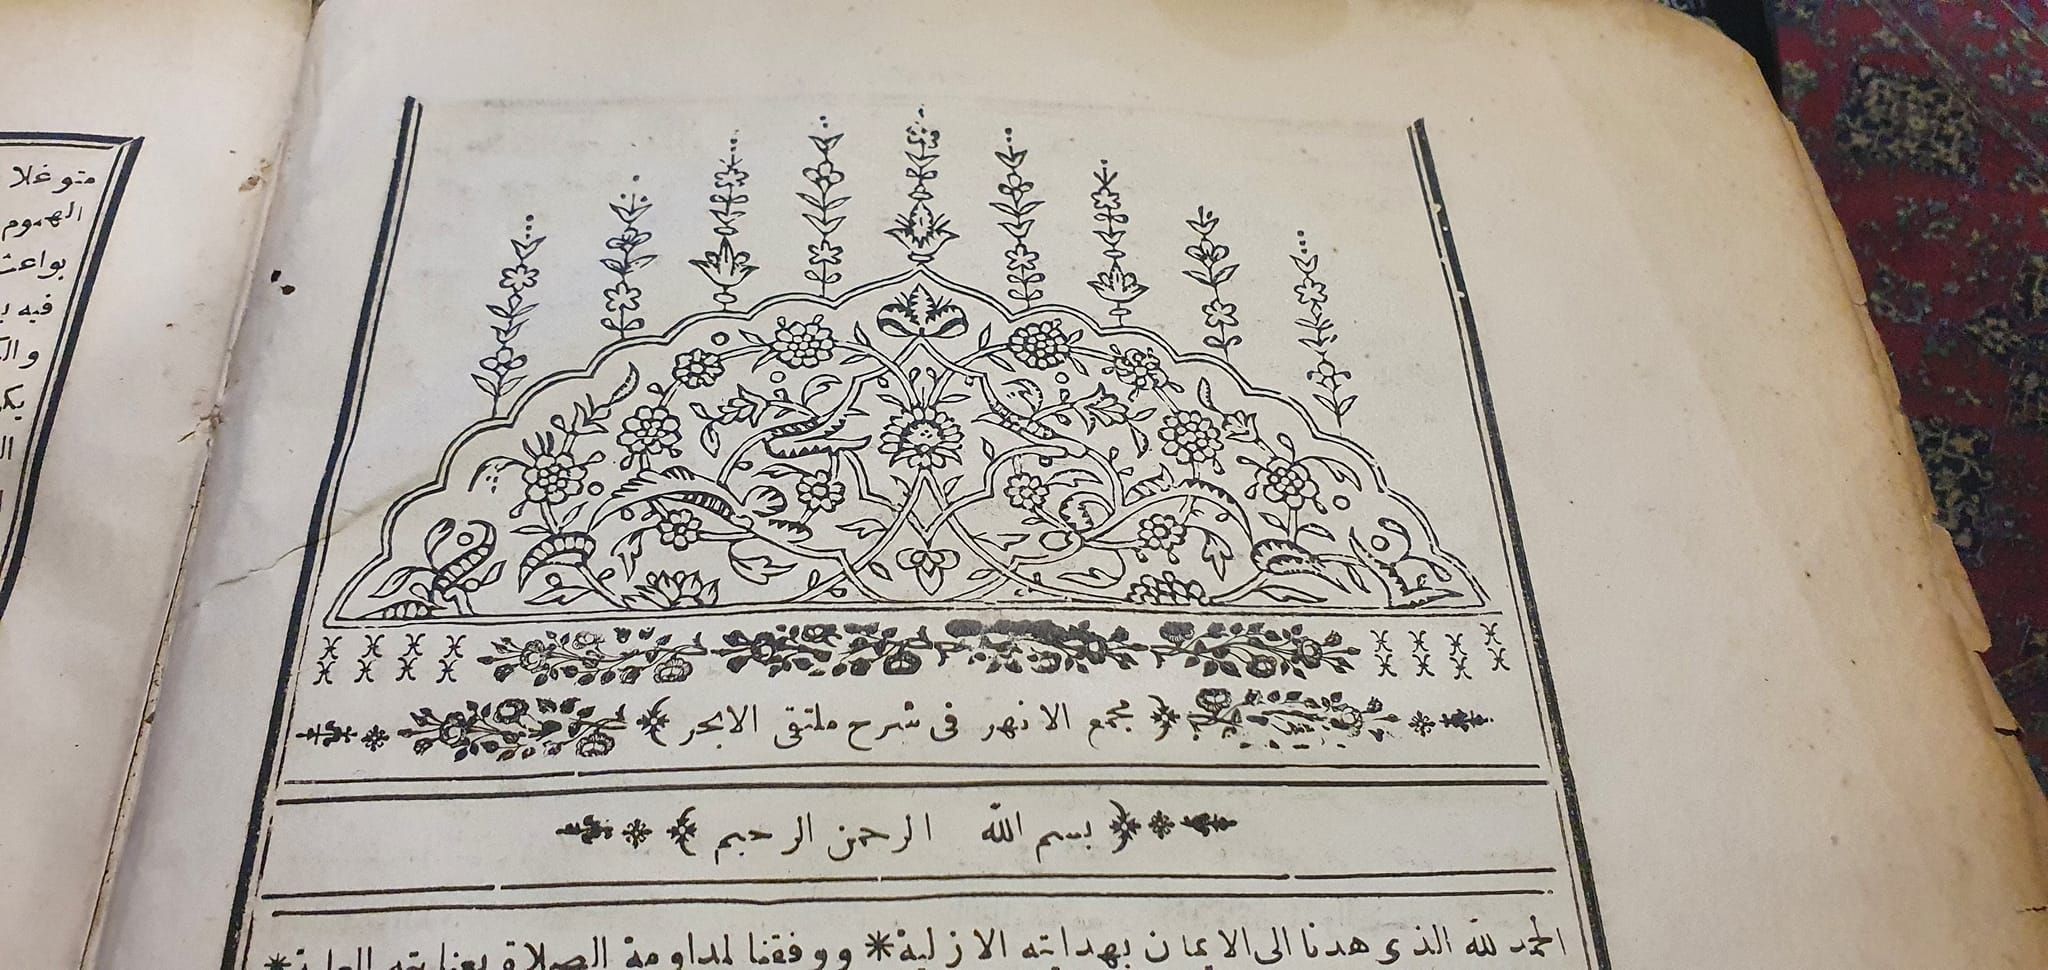 مجمع الانهر فى شرح ملتقى الابحر
بسم الله الرحمن الرحيم
الحمد لله الذى هدنا الى الايمان بهدايته الازلية * ووفقنا لمداومة الصلاة بعنايته العلية *
متوغلا
الهموم
بواعث
فيه